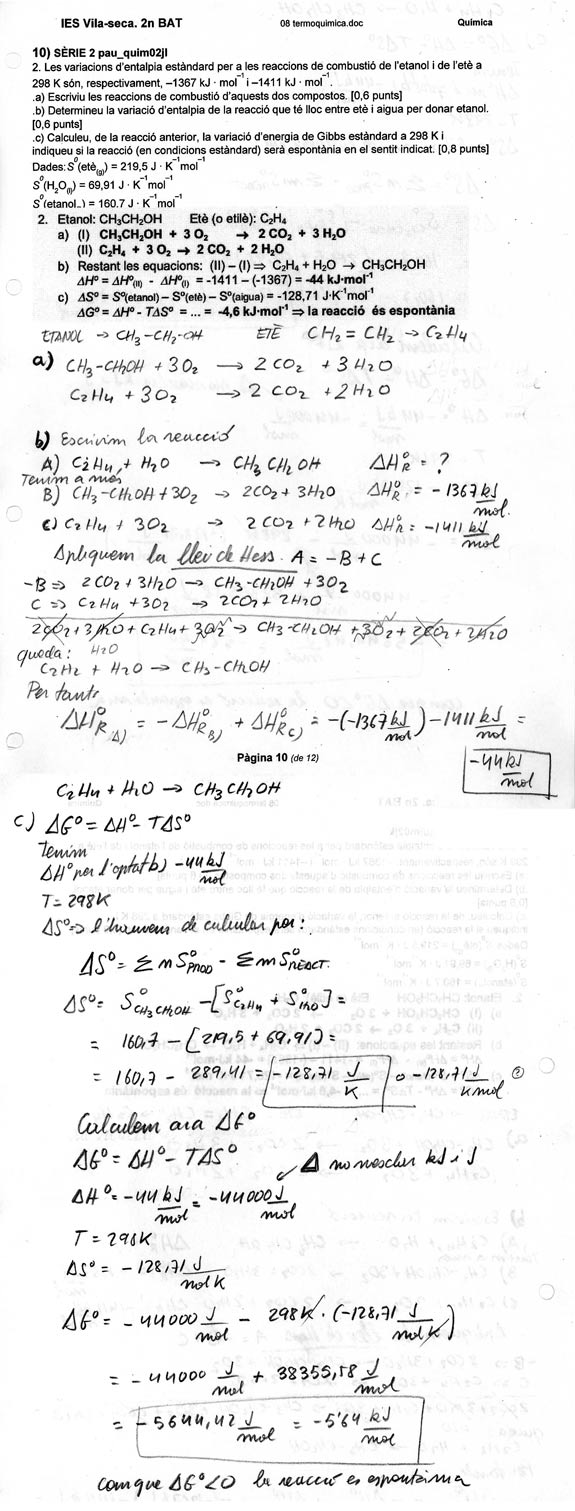 IES Vila-seca. 2n BAT 08 termoquimica.doc Química
10) SÈRIE 2 pau_quim02jl
2. Les variacions d'entalpia estàndard per a les reaccions de combustió de l'etanol i de l'etè a
298 K són, respectivament, –1367 kJ · mol⁻¹ i –1411 kJ · mol⁻¹.
.a) Escriviu les reaccions de combustió d'aquests dos compostos. [0,6 punts]
.b) Determineu la variació d'entalpia de la reacció que té lloc entre etè i aigua per donar etanol.
[0,6 punts]
.c) Calculeu, de la reacció anterior, la variació d'energia de Gibbs estàndard a 298 K i
indiqueu si la reacció (en condicions estàndard) serà espontània en el sentit indicat. [0,8 punts]
Dades: S⁰(etè₍g₎) = 219,5 J · K⁻¹mol⁻¹
S⁰(H₂O₍l₎) = 69,91 J · K⁻¹mol⁻¹
S⁰(etanol..) = 160.7 J · K⁻¹mol⁻¹
2. Etanol: CH₃CH₂OH Etè (o etilè): C₂H₄
a) (I) CH₃CH₂OH + 3 O₂ → 2 CO₂ + 3 H₂O
(II) C₂H₄ + 3 O₂ → 2 CO₂ + 2 H₂O
b) Restant les equacions: (II) – (I) ⇒ C₂H₄ + H₂O → CH₃CH₂OH
ΔHº = ΔHº₍II₎ - ΔHº₍I₎ = -1411 – (-1367) = -44 kJ·mol⁻¹
c) ΔSº = Sº(etanol) – Sº(etè) – Sº(aigua) = -128,71 J·K⁻¹mol⁻¹
ΔGº = ΔHº - TΔSº = ... = -4,6 kJ·mol⁻¹ ⇒ la reacció és espontània
ETANOL → CH₃-CH₂-OH ETÈ CH₂=CH₂ → C₂H₄
a) CH₃-CH₂OH + 3O₂ → 2CO₂ + 3H₂O
C₂H₄ + 3O₂ → 2CO₂ + 2H₂O
b) Escrivim la reacció
A) C₂H₄ + H₂O → CH₃CH₂OH ΔHºR = ?
Tenim a més
B) CH₃-CH₂OH + 3O₂ → 2CO₂ + 3H₂O ΔHºR = -1367 kJ/mol.
C) C₂H₄ + 3O₂ → 2CO₂ + 2H₂O ΔHºR = -1411 kJ/mol
Apliquem la llei de Hess. A = -B + C
-B ⇒ 2CO₂ + 3H₂O → CH₃-CH₂OH + 3O₂
C ⇒ C₂H₄ + 3O₂ → 2CO₂ + 2H₂O
2CO₂ + 3H₂O + C₂H₄ + 3O₂ → CH₃-CH₂OH + 3O₂ + 2CO₂ + 2H₂O
queda: H₂O
C₂H₂ + H₂O → CH₃-CH₂OH
Per tant
ΔHºR A) = -ΔHºR B) + ΔHºR C) = -(-1367 kJ/mol) - 1411 kJ/mol =
Pàgina 10 (de 12)
-44 kJ/mol
C₂H₄ + H₂O → CH₃CH₂OH
c) ΔGº = ΔHº - TΔSº
Tenim
ΔHº per l'aptat b) -44 kJ/mol
T = 298K
ΔSº ⇒ l'haurem de calcular per:
ΔSº = Σ m SºPROD - Σ m SºREACT.
ΔSº = SºCH₃CH₂OH - [SºC₂H₄ + SºH₂O] =
= 160,7 - [219,5 + 69,91] =
= 160,7 - 289,41 = -128,71 J/K o -128,71 J/K mol
Calculem ara ΔGº
ΔGº = ΔHº - TΔSº ✓ Δ no mesclar kJ i J
ΔHº = -44 kJ/mol = -44000 J/mol
T = 298K
ΔSº = -128,71 J/mol K
ΔGº = -44000 J/mol - 298K · (-128,71 J/mol K)
= -44000 J/mol + 38355,58 J/mol
= -5644,42 J/mol = -5'64 kJ/mol
com que ΔGº<0 la reacció és espontània